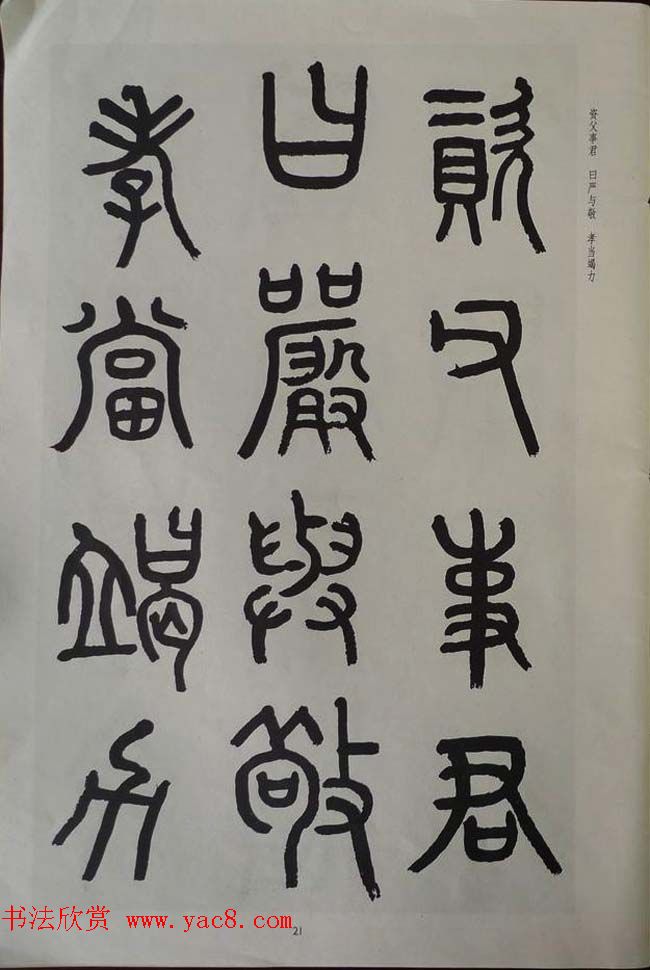 資父事君
曰嚴與敬
孝當竭力
资父事君 曰严与敬 孝当竭力
书法欣赏 www.yac8.com
21